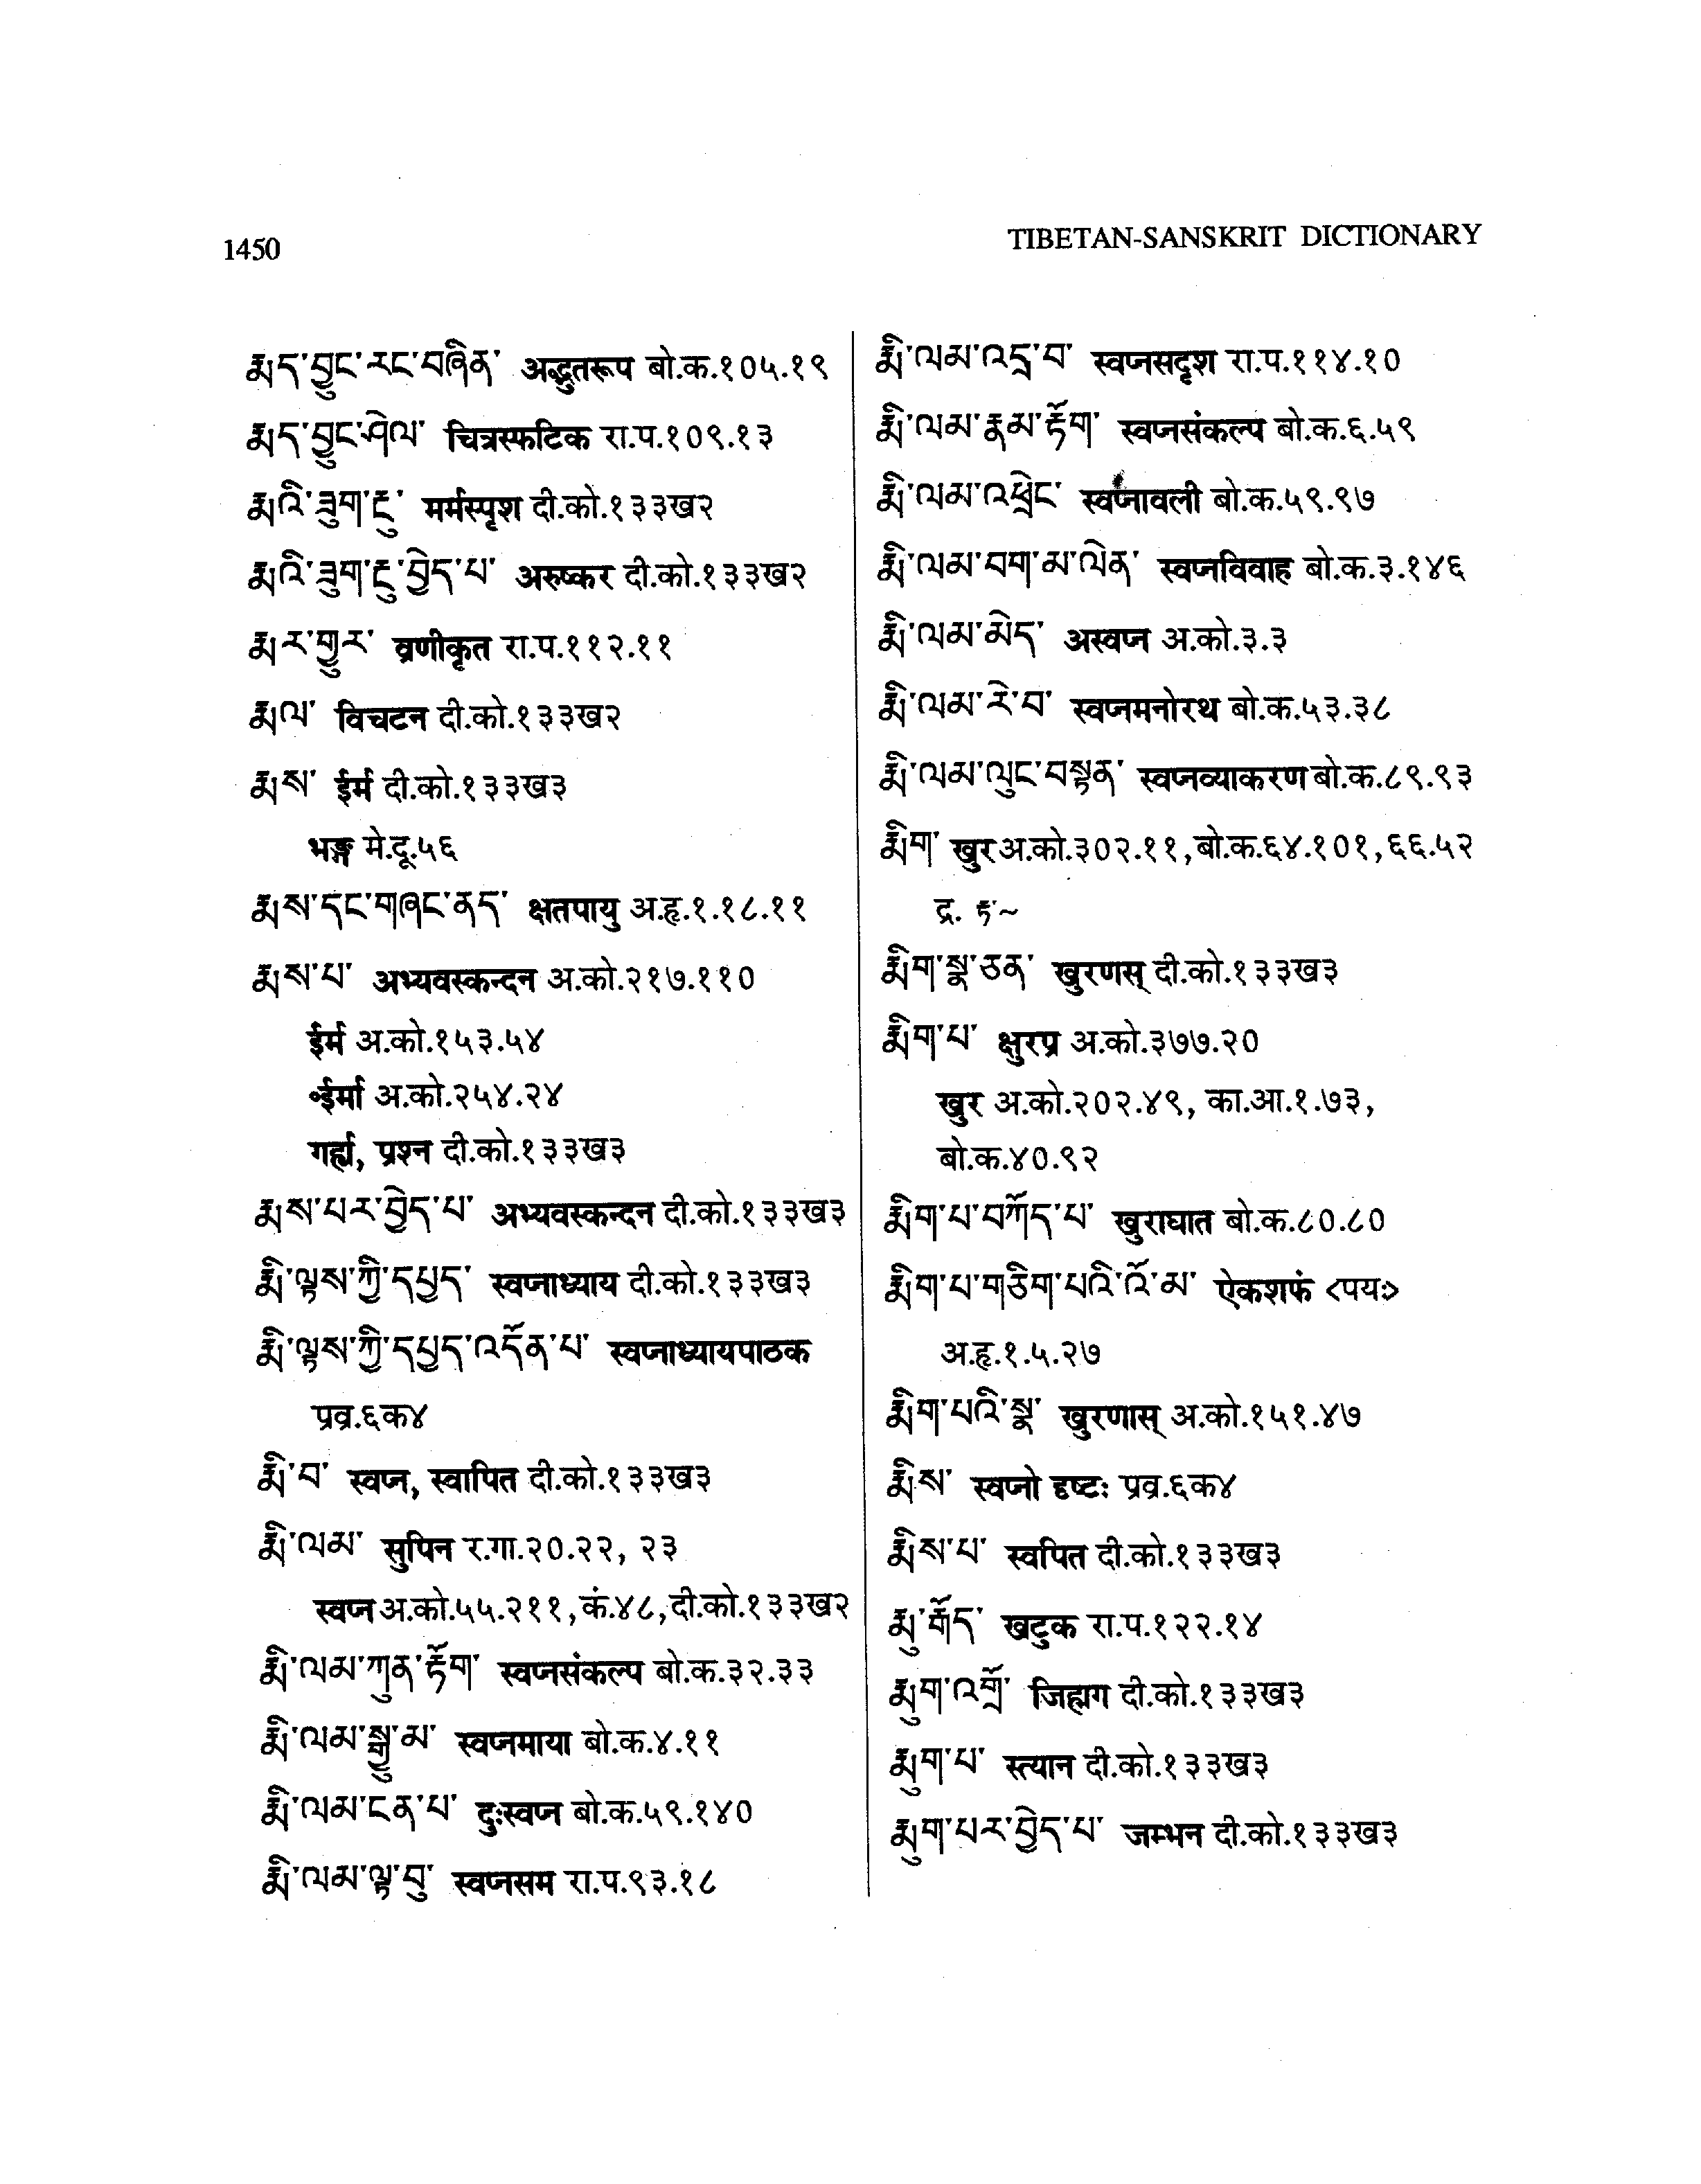 1450
TIBETAN-SANSKRIT DICTIONARY
རྨད་བྱུང་རང་བཞིན་ अद्भुतरूप बो.क.१०५.१९
རྨད་བྱུང་ཤེལ་ चित्रस्फटिक रा.प.१०९.१३
རྨའི་ཟུག་རྔུ་ मर्मस्पृश दी.को.१३३ख२
རྨའི་ཟུག་རྔུ་བྱེད་པ་ अरुष्कर दी.को.१३३ख२
རྨར་གྱུར་ व्रणीकृत रा.प.११२.११
རྨལ་ विचटन दी.को.१३३ख२
རྨས་ ईर्म दी.को.१३३ख३
भङ्ग मे.दू.५६
རྨས་དང་གཞང་ནད་ क्षतपायु अ.हृ.१.१८.११
རྨས་པ་ अभ्यवस्कन्दन अ.को.२१७.११०
ईर्म अ.को.१५३.५४
॰ईर्मा अ.को.२५४.२४
गर्ह्य, प्रश्न दी.को.१३३ख३
རྨས་པར་བྱེད་པ་ अभ्यवस्कन्दन दी.को.१३३ख३
རྨི་ལྟས་ཀྱི་དཔྱད་ स्वप्नाध्याय दी.को.१३३ख३
རྨི་ལྟས་ཀྱི་དཔྱད་འདོན་པ་ स्वप्नाध्यायपाठक
प्रव्र.६क४
རྨི་བ་ स्वप्न, स्वापित दी.को.१३३ख३
རྨི་ལམ་ सुपिन र.गा.२०.२२, २३
स्वप्न अ.को.५५.२११,कं.४८,दी.को.१३३ख२
རྨི་ལམ་ཀུན་རྟོག་ स्वप्नसंकल्प बो.क.३२.३३
རྨི་ལམ་སྒྱུ་མ་ स्वप्नमाया बो.क.४.११
རྨི་ལམ་ངན་པ་ दुःस्वप्न बो.क.५९.१४०
རྨི་ལམ་ལྟ་བུ་ स्वप्नसम रा.प.९३.१८
རྨི་ལམ་འདྲ་བ་ स्वप्नसदृश रा.प.११४.१०
རྨི་ལམ་རྣམ་རྟོག་ स्वप्नसंकल्प बो.क.६.५९
རྨི་ལམ་འཕྲེང་ स्वप्नावली बो.क.५९.९७
རྨི་ལམ་བག་མ་ལེན་ स्वप्नविवाह बो.क.३.१४६
རྨི་ལམ་མེད་ अस्वप्न अ.को.३.३
རྨི་ལམ་རེ་བ་ स्वप्नमनोरथ बो.क.५३.३८
རྨི་ལམ་ལུང་བསྟན་ स्वप्नव्याकरण बो.क.८९.९३
རྨིག་ खुर अ.को.३०२.११,बो.क.६४.१०१,६६.५२
द्र. རྟ་~
རྨིག་སྣ་ཅན་ खुरणस् दी.को.१३३ख३
རྨིག་པ་ क्षुरप्र अ.को.३७७.२०
खुर अ.को.२०२.४९, का.आ.१.७३,
बो.क.४०.९२
རྨིག་པ་བཀོད་པ་ खुराघात बो.क.८०.८०
རྨིག་པ་གཅིག་པའི་འོ་མ་ ऐकशफं <पयः>
अ.हृ.१.५.२७
རྨིག་པའི་སྣ་ खुरणास् अ.को.१५१.४७
རྨིས་ स्वप्नो दृष्टः प्रव्र.६क४
རྨིས་པ་ स्वपित दी.को.१३३ख३
རྨུ་རྒོད་ खटुक रा.प.१२२.१४
རྨུག་འགྲོ་ जिह्मग दी.को.१३३ख३
རྨུག་པ་ स्त्यान दी.को.१३३ख३
རྨུག་པར་བྱེད་པ་ जम्भन दी.को.१३३ख३